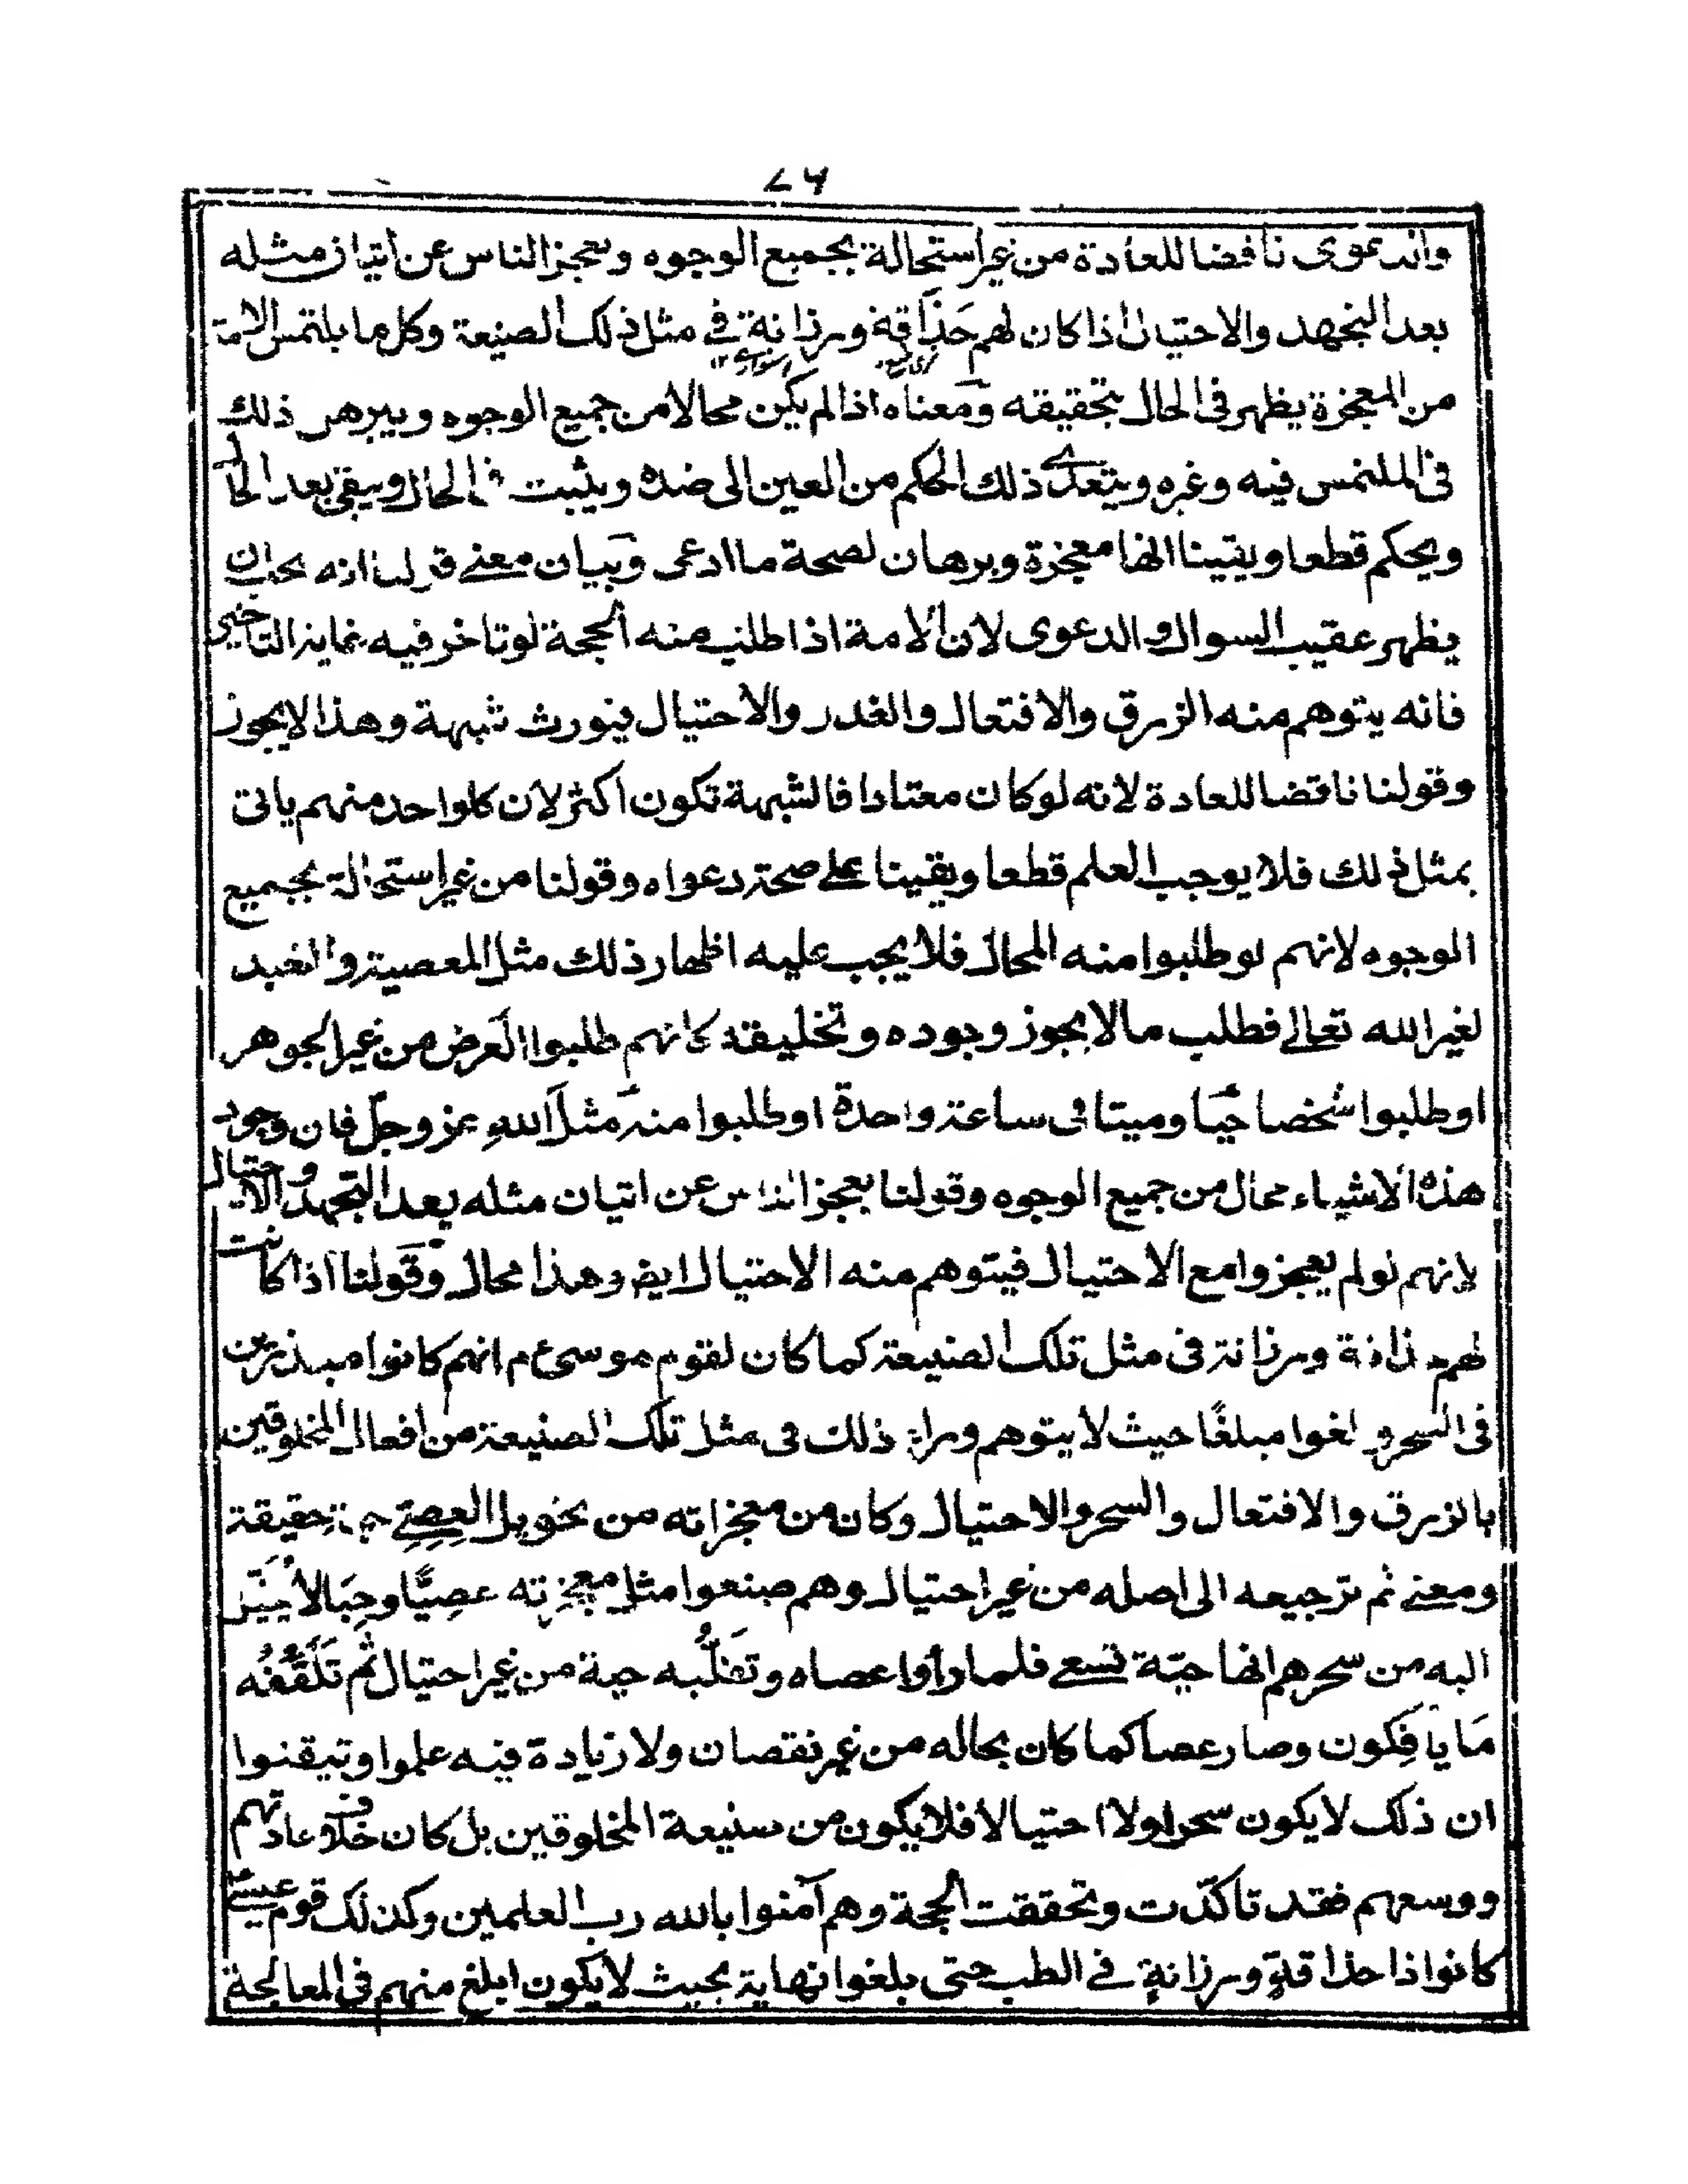 ٧٦
والدعوى ناقضا للعادة من غير استحالة بجميع الوجوه ويعجز الناس عن اتيان مثله
بعد التجهد والاحتيال اذا كان لهم حَذَاقة ورزانة في مثل ذلك الصنيعة وكل ما يلتمس الامة
من المعجزة يظهر فى الحال بتحقيقه ومعناه اذا لم يكن محالا من جميع الوجوه ويبرهن ذلك
فى الملتمس فيه وغيره ويتعدى ذلك الحكم من العين الى ضده ويثبت فى الحال ويبقى بعد الحال
ويحكم قطعا ويقينا انها معجزة وبرهان لصحة ما ادعى وبيان معنے قولنا انه يجب ان
يظهر عقيب السوال والدعوى لان الامة اذا طلب منه الحجة لو تاخر فيه غاية التاخير
فانه يتوهم منه الزرق والافتعال والغدر والاحتيال فيورث شبهة وهذا لا يجوز
وقولنا ناقضا للعادة لانه لو كان معتادا فالشبهة تكون اكثر لان كل واحد منهم ياتى
بمثل ذلك فلا يوجب العلم قطعا ويقينا علے صحة دعواه وقولنا من غير استحالة بجميع
الوجوه لانهم لو طلبوا منه المحال فلا يجب عليه اظهار ذلك مثل المعصية والتعبد
لغير الله تعالے فطلب ما لا يجوز وجوده وتخليقه كانهم طلبوا العَرض من غير الجوهر
او طلبوا شخصا حيّا وميتا فى ساعة واحدة او طلبوا منه مثل الله عز وجلّ فان وجود
هذه الاشياء محال من جميع الوجوه وقولنا يعجز الناس عن اتيان مثله بعد التجهد والاحتيال
لانهم لو لم يعجزوا مع الاحتيال فيتوهم منه الاحتيال ايض وهذا محال وقولنا اذا كانت
لهم حذاقة ورزانة فى مثل تلك الصنيعة كما كان لقوم موسى ع م انهم كانوا
فى السحر وبلغوا مبلغًا حيث لا يتوهم وراء ذلك فى مثل تلك الصنيعة من افعال المخلوقين
بالزرق والافتعال والسحر والاحتيال وكان من معجزاته من تحويل العِصِے حية حقيقة
ومعنے ثم ترجيعه الى اصله من غير احتيال وهم صنعوا مثل معجزته عصيًّا وحِبَالا يُخيَّل
اليه من سحرهم انها حيّة تسعے فلما راوا عصاه وتقلُّبه حية من غير احتيال ثُم تَلَقُّفُه
مَا يَافِكون وصار عصا كما كان بحاله من غير نقصان ولا زيادة فيه علموا وتيقنوا
ان ذلك لا يكون سحرا ولا احتيالا فلا يكون من صنيعة المخلوقين بل كان خلاف عادتهم
ووسعهم فقد تاكّدت وتحققت الحجة وهم آمنوا بالله رب العلمين وكذلك قوم عيسےٰ ع
كانوا ذا حذاقةٍ ورزانةٍ في الطب حتى بلغوا نهاية بحيث لا يكون ابلغ منهم فى المعالجة